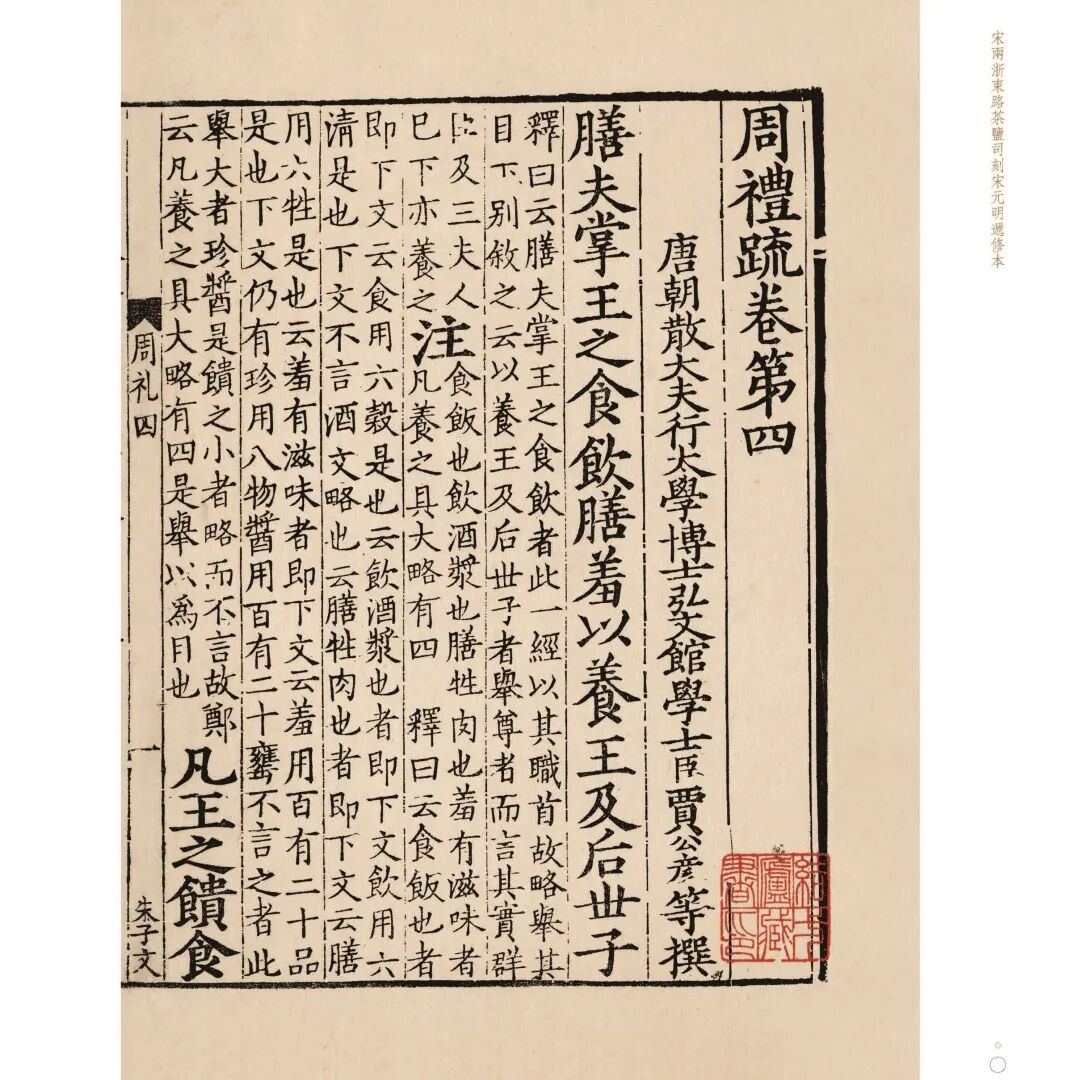 宋兩浙東路茶鹽司刻宋元明遞修本
周禮䟽卷第四
唐朝散大夫行太學博士弘文館學士臣賈公彥等撰
膳夫掌王之食飲膳羞以養王及后世子
釋曰云膳夫掌王之食飲者此一經以其職首故略舉其
目下別敘之云以養王及后世子者舉尊者而言其實群
臣及三夫人
已下亦養之
注
食飯也飲酒漿也膳牲肉也羞有滋味者
凡養之具大略有四　釋曰云食飯也者
即下文云食用六穀是也云飲酒漿也者即下文飲用六
清是也下文不言酒文略也云膳牲肉也者即下文云膳
用六牲是也云羞有滋味者即下文云羞用百有二十品
是也下文仍有珍用八物醬用百有二十罋不言之者此
舉大者珍醬是饋之小者略而不言故鄭
云凡養之具大略有四是舉以爲目也
凡王之饋食
周礼四
一
朱子文